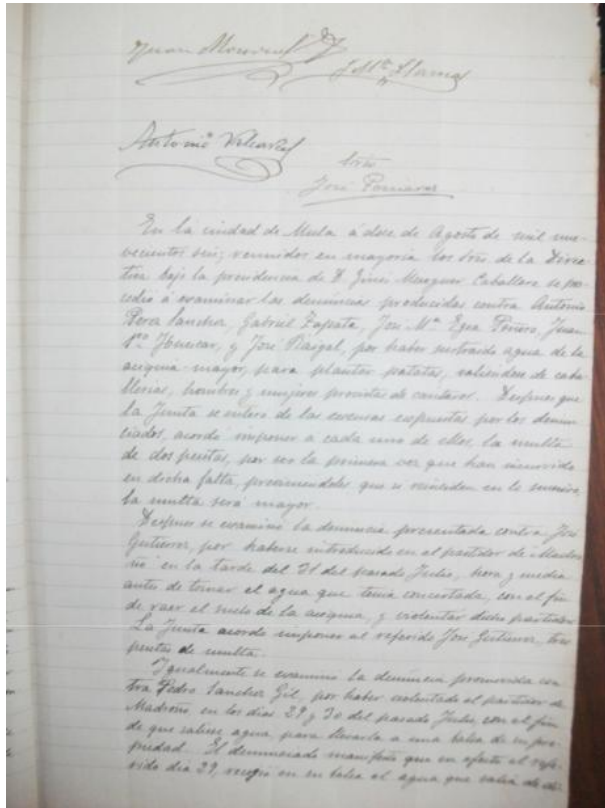 Juan
J Mª Llamas
Antonio Valcarcel
Srio
José
En la ciudad de Mula á doce de Agosto de mil nue-
vecientos seis; reunidos en mayoria los Sres de la Direc-
tiva bajo la presidencia de D Ginés Marquez Caballero se pro-
cedió á examinar las denuncias producidas contra Antonio
Perez Sanchez, Gabriel Zapata, José Mª Egea Piñero, Juan
Huescar, y José Raigal, por haber sustraido agua de la
acequia mayor, para plantar patatas, valiendose de caba-
llerias, hombres y mujeres provistas de cantaros. Despues que
la Junta se entero de las excusas expuestas por los denun-
ciados, acordó imponer á cada uno de ellos, la multa
de dos pesetas, por ser la primera vez que han incurrido
en dicha falta, previniendoles que si reinciden en lo sucesivo,
la multa será mayor.
Despues se examinó la denuncia presentada contra José
Gutierrez, por haberse introducido en el partidor de Madro-
ño en la tarde del 31 del pasado Julio, hora y media
antes de tomar el agua que tenia concertada, con el fin
de raer el suelo de la acequia, y violentar dicho partidor
La Junta acordó imponer al referido José Gutierrez, tres
pesetas de multa.
Igualmente se examinó la denuncia promovida con-
tra Pedro Sanchez Gil, por haber violentado el partidor de
Madroño, en los dias 29 y 30 del pasado Julio, con el fin
de que saliese agua, para llevarla a una balsa de su pro-
piedad. El denunciado manifestó que en efecto el refe-
rido dia 29, recogió en su balsa el agua que salia de di-